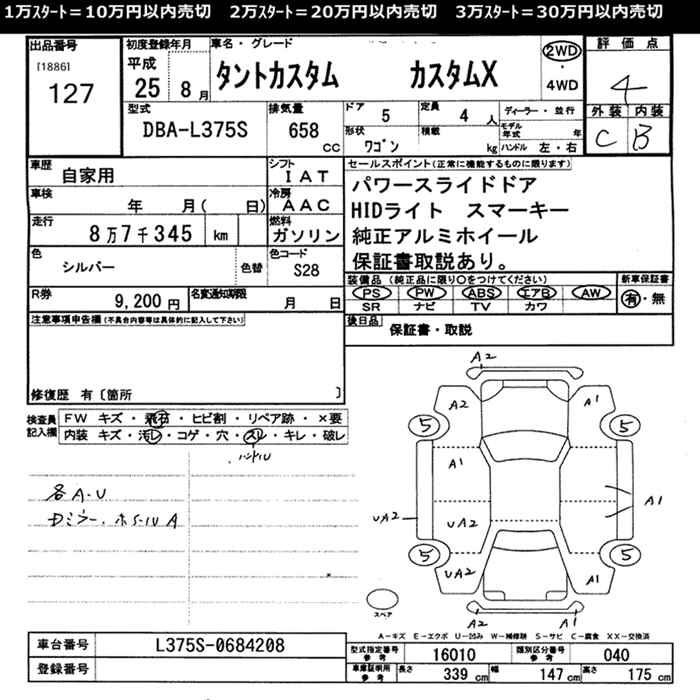 1万ｽﾀｰﾄ＝10万円以内売切　2万ｽﾀｰﾄ＝20万円以内売切　3万ｽﾀｰﾄ＝30万円以内売切
出品番号
[1886]
127
初度登録年月
平成
25 8月
車名・グレード
タントカスタム カスタムX
2WD
・
4WD
評価点
4
外装 内装
C B
型式
DBA-L375S
排気量
658 cc
ドア 5
定員 4人
形状 ワゴン
積載 kg
ディーラー・並行
モデル年式 年
ハンドル 左・右
車歴 自家用
シフト IAT
車検 年 月( 日)
冷房 AAC
走行 8万7千345 km
燃料 ガソリン
色 シルバー 色替
色コード S28
R券 9,200円
名変通知期限 月 日
セールスポイント(正常に機能するものに限ります)
パワースライドドア
HIDライト スマーキー
純正アルミホイール
保証書取説あり。
装備品(純正品に限り○をつけてください)
PS PW ABS エアB AW
SR ナビ TV カワ
新車保証書
有・無
後日品 保証書・取説
注意事項申告欄(不具合内容等は具体的に記入して下さい)
修復歴 有〔箇所 〕
検査員記入欄
FW キズ・飛石・ヒビ割・リペア跡・×要
内装 キズ・汚レ・コゲ・穴・スレ・キレ・破レ
ハンドル
各A・U
Dミラー、ホイールA
A2
A2
A1
5
5
A1
A1
UA2
UA2
5
5
UA2
A1
A2
A1
スペア
A－キズ E－エクボ U－凹み W－補修跡 S－サビ C－腐食 XX－交換済
車台番号 L375S-0684208
登録番号
型式指定番号 参考 16010
類別区分番号 参考 040
車庫証明用 参考 長さ 339 cm 幅 147 cm 高さ 175 cm